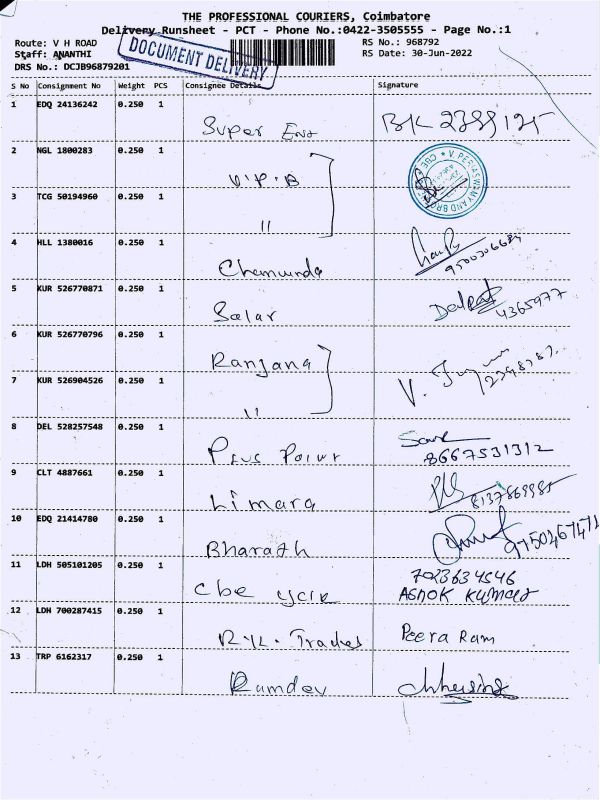 THE PROFESSIONAL COURIERS, Coimbatore
Delivery Runsheet - PCT - Phone No.:0422-3505555 - Page No.:1
Route: V H ROAD RS No.: 968792
Staff: ANANTHI RS Date: 30-Jun-2022
DRS No.: DCJB96879201
DOCUMENT DELIVERY
S No Consignment No Weight PCS Consignee Details Signature
1 EDQ 24136242 0.250 1
Super Ent
2 NGL 1800283 0.250 1
V.P.B
3 TCG 50194960 0.250 1
"
4 HLL 1380016 0.250 1
Chamunda
5 KUR 526770871 0.250 1
Salar
6 KUR 526770796 0.250 1
Ranjana
7 KUR 526904526 0.250 1
"
8 DEL 528257548 0.250 1
8667531312
9 CLT 4887661 0.250 1
Limara 8137869985
10 EDQ 21414780 0.250 1
Bharath
11 LDH 505101205 0.250 1
7023634546
Cbe ASHOK KUMAR
12 LDH 700287415 0.250 1
Peera Ram
13 TRP 6162317 0.250 1
Ramdev